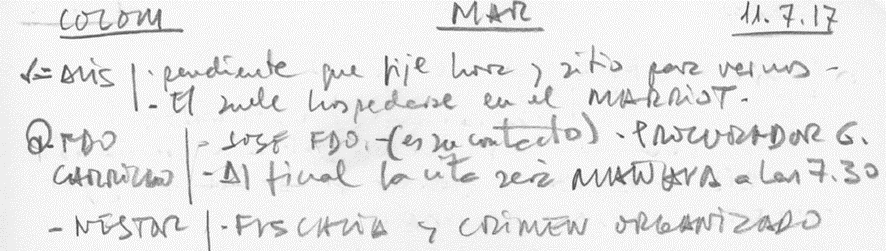 COLOM MAR 11.7.17
1= ALIS | · pendiente que fije hora y sitio para vernos -
- El suele hospedarse en el MARRIOT.
2. FDO | - JOSE FDO. - (es su contacto) · PROCURADOR G.
CARRILLO | - Al final la cita será MAÑANA a las 7.30
- NESTOR | · FISCALIA y CRIMEN ORGANIZADO